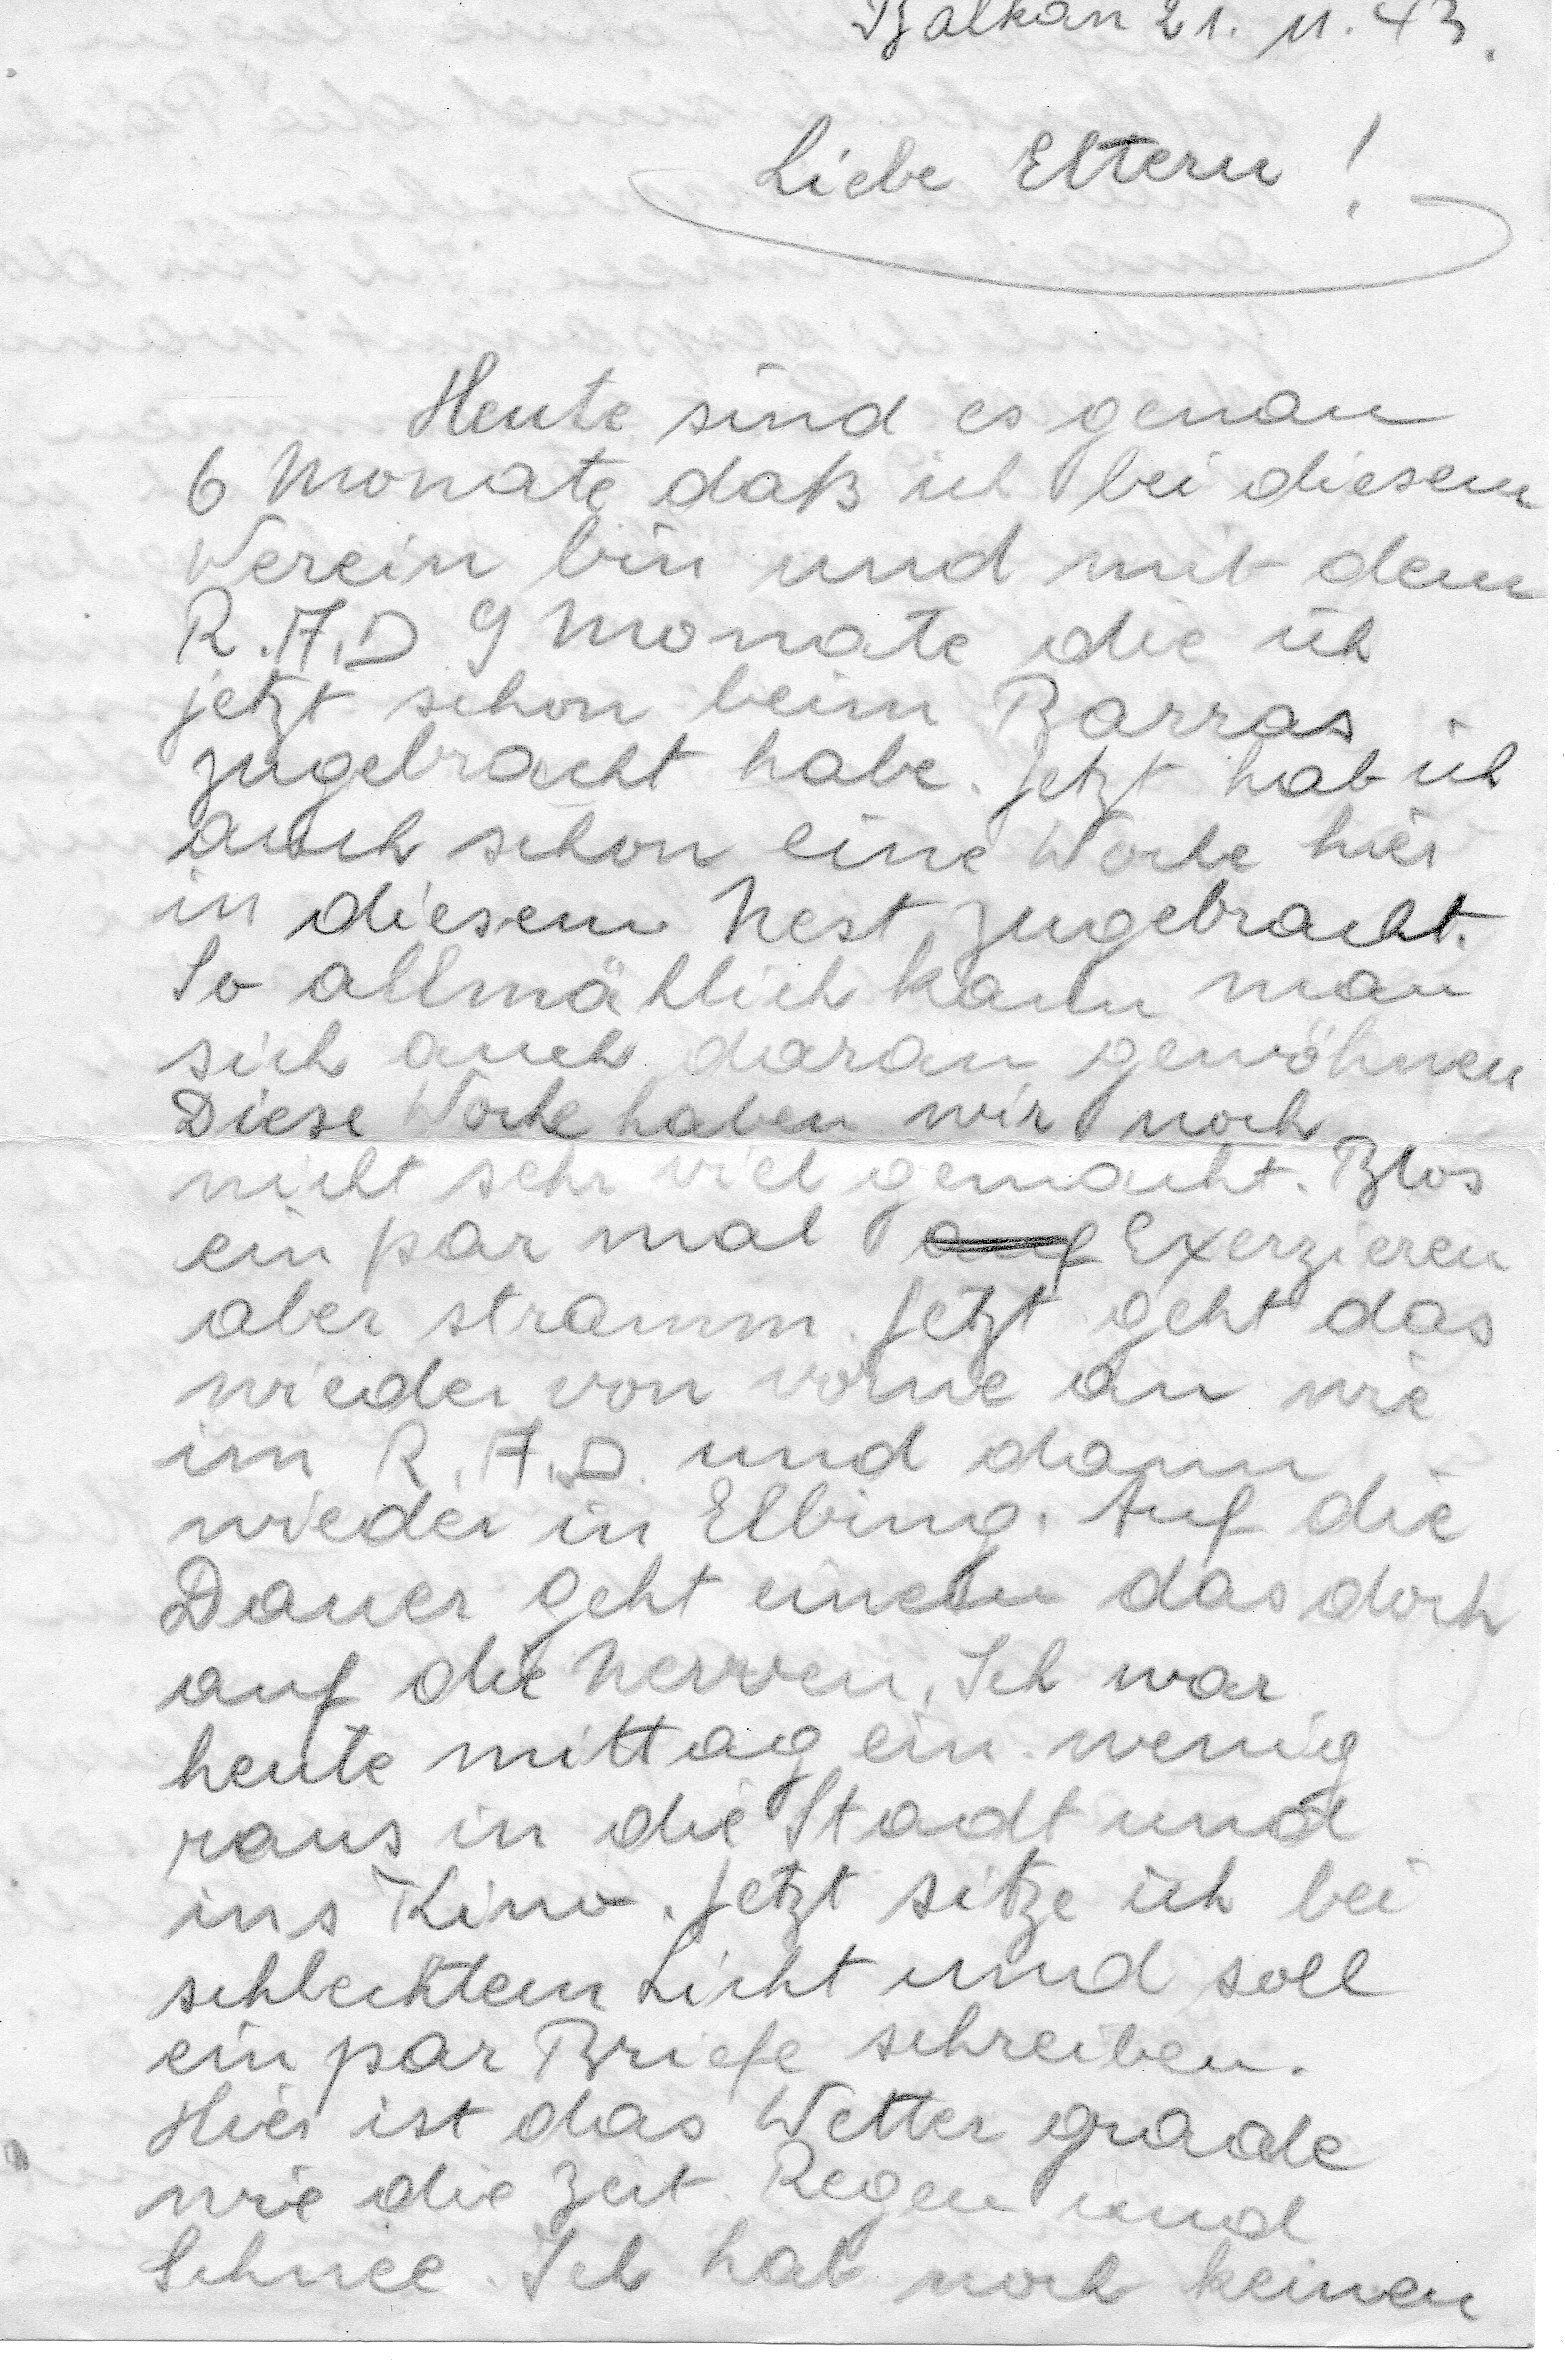 Balkan 21. 11. 43.
Liebe Eltern!
Heute sind es genau
6 Monate daß ich bei diesem
Verein bin und mit dem
R.A.D 9 Monate die ich
jetzt schon beim Barras
zugebracht habe. Jetzt hab ich
auch schon eine Woche hier
in diesem Nest zugebracht.
So allmählich kann man
sich auch daran gewöhnen
Diese Woche haben wir noch
nicht sehr viel gemacht. Blos
ein par mal auf Exerzieren
aber stramm. Jetzt geht das
wieder von vorne an wie
im R.A.D. und dann
wieder in Elbing. Auf die
Dauer geht einem das doch
auf die Nerven. Ich war
heute mittag ein wenig
raus in die Stadt und
ins Kino. Jetzt sitze ich bei
schlechtem Licht und soll
ein par Briefe schreiben.
Hier ist das Wetter grade
wie die Zeit Regen und
Schnee. Ich hab noch keinen